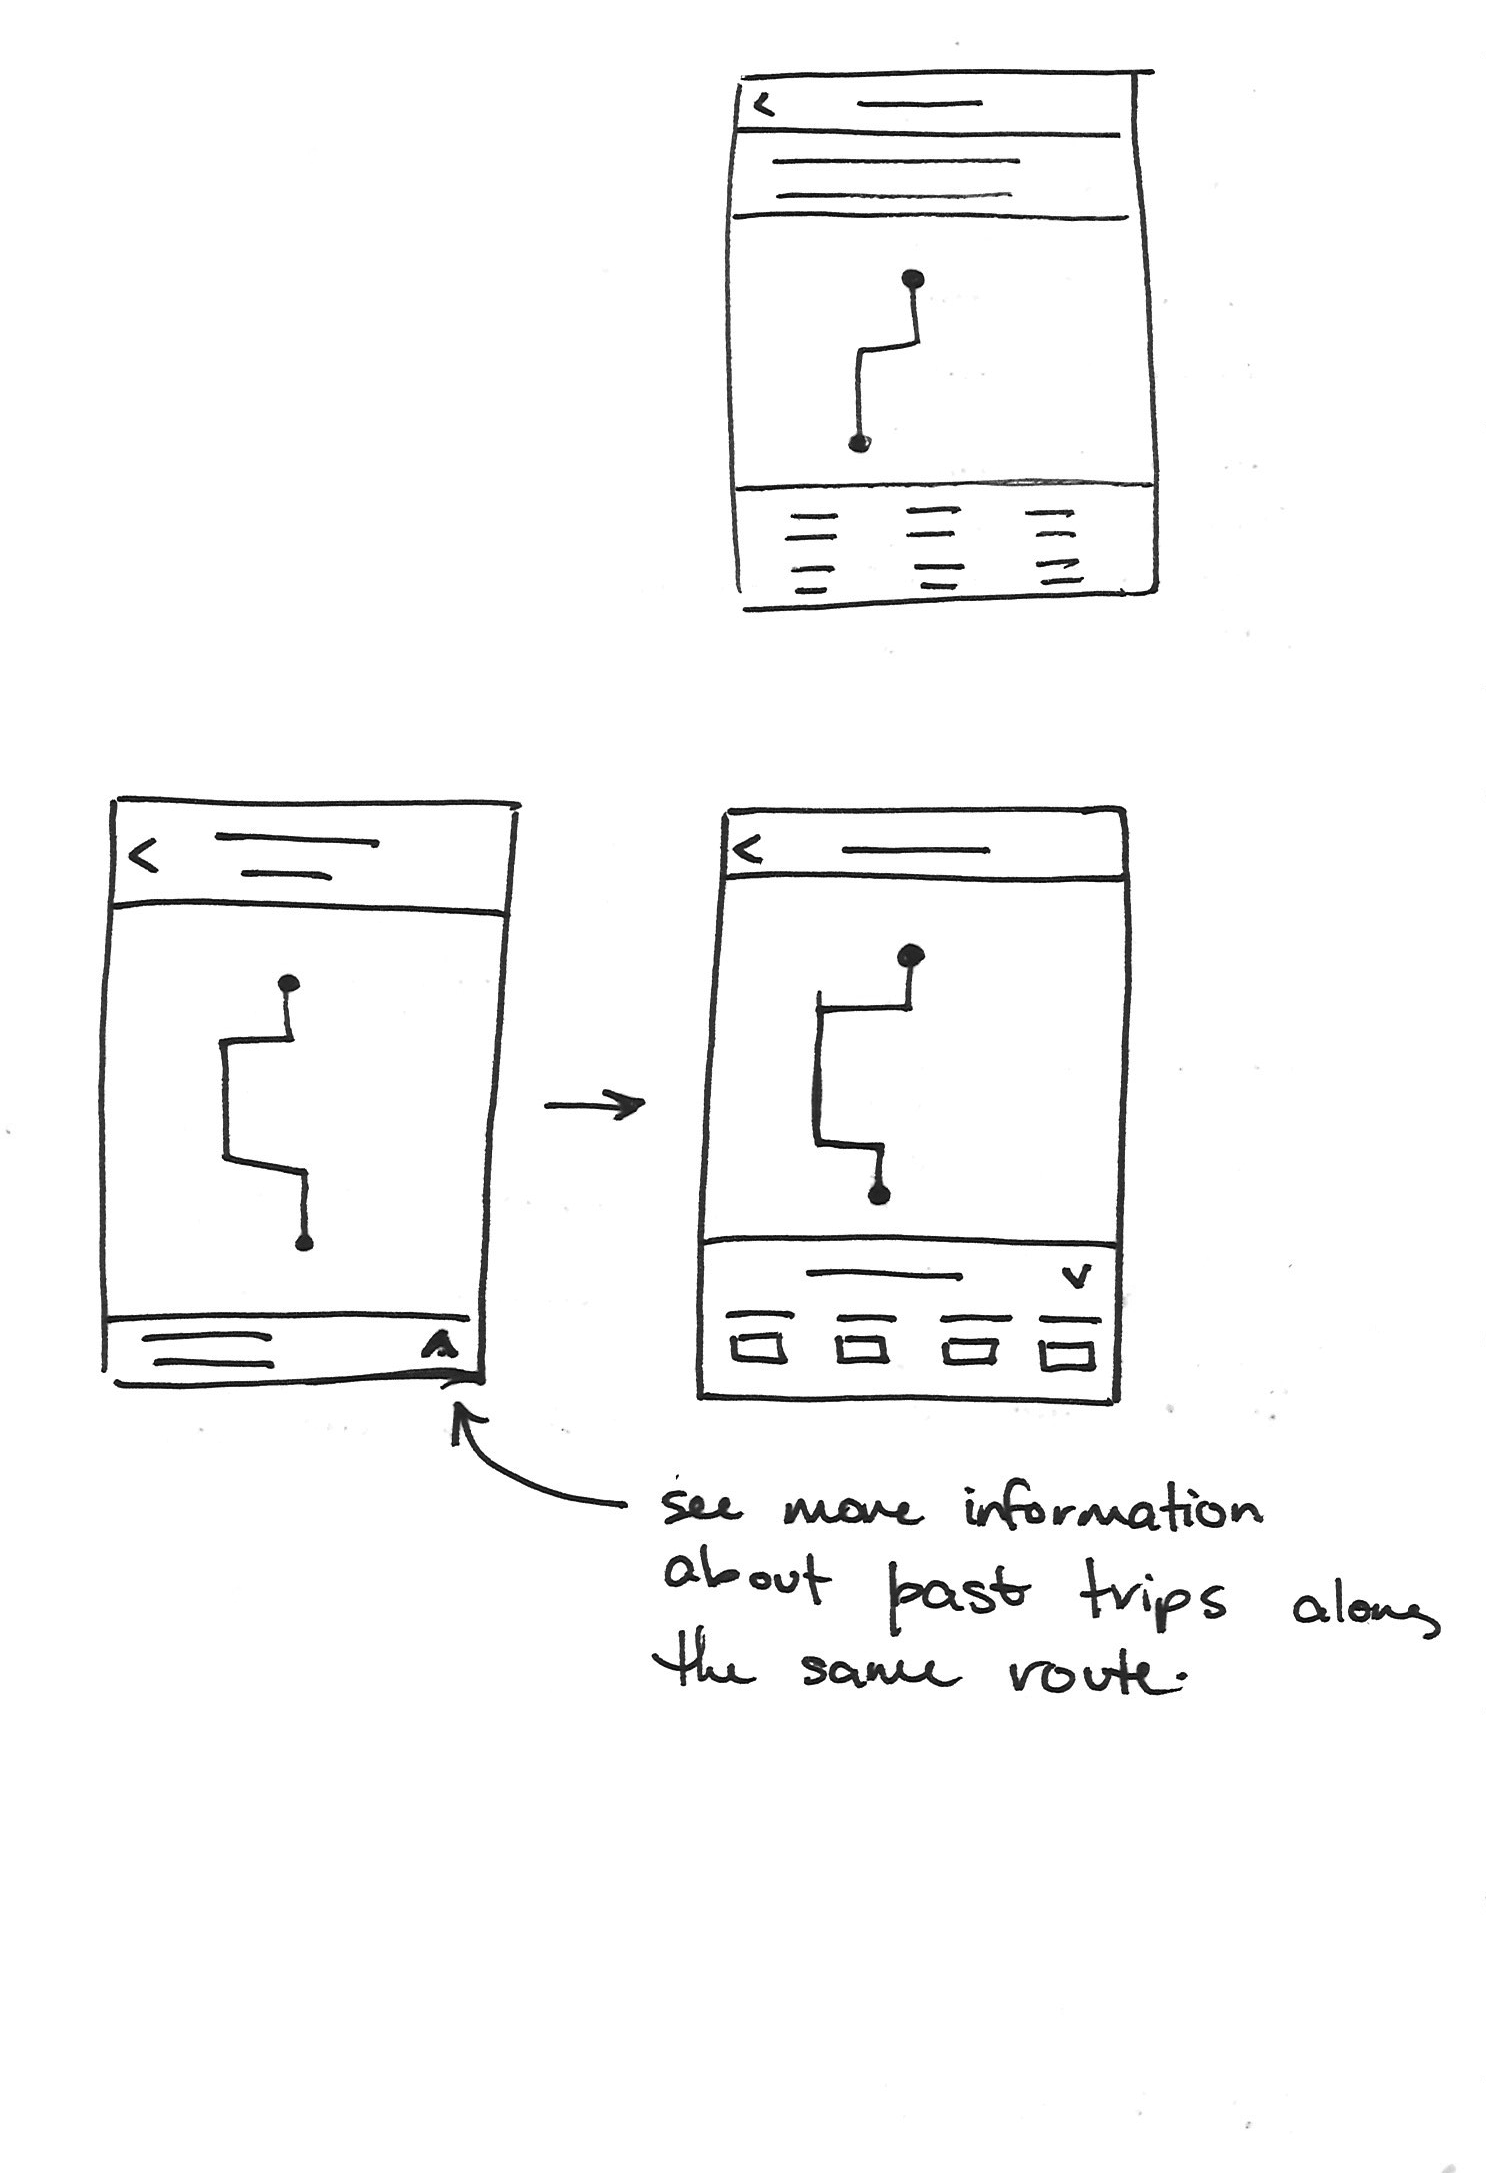 see more information
about past trips along
the same route.